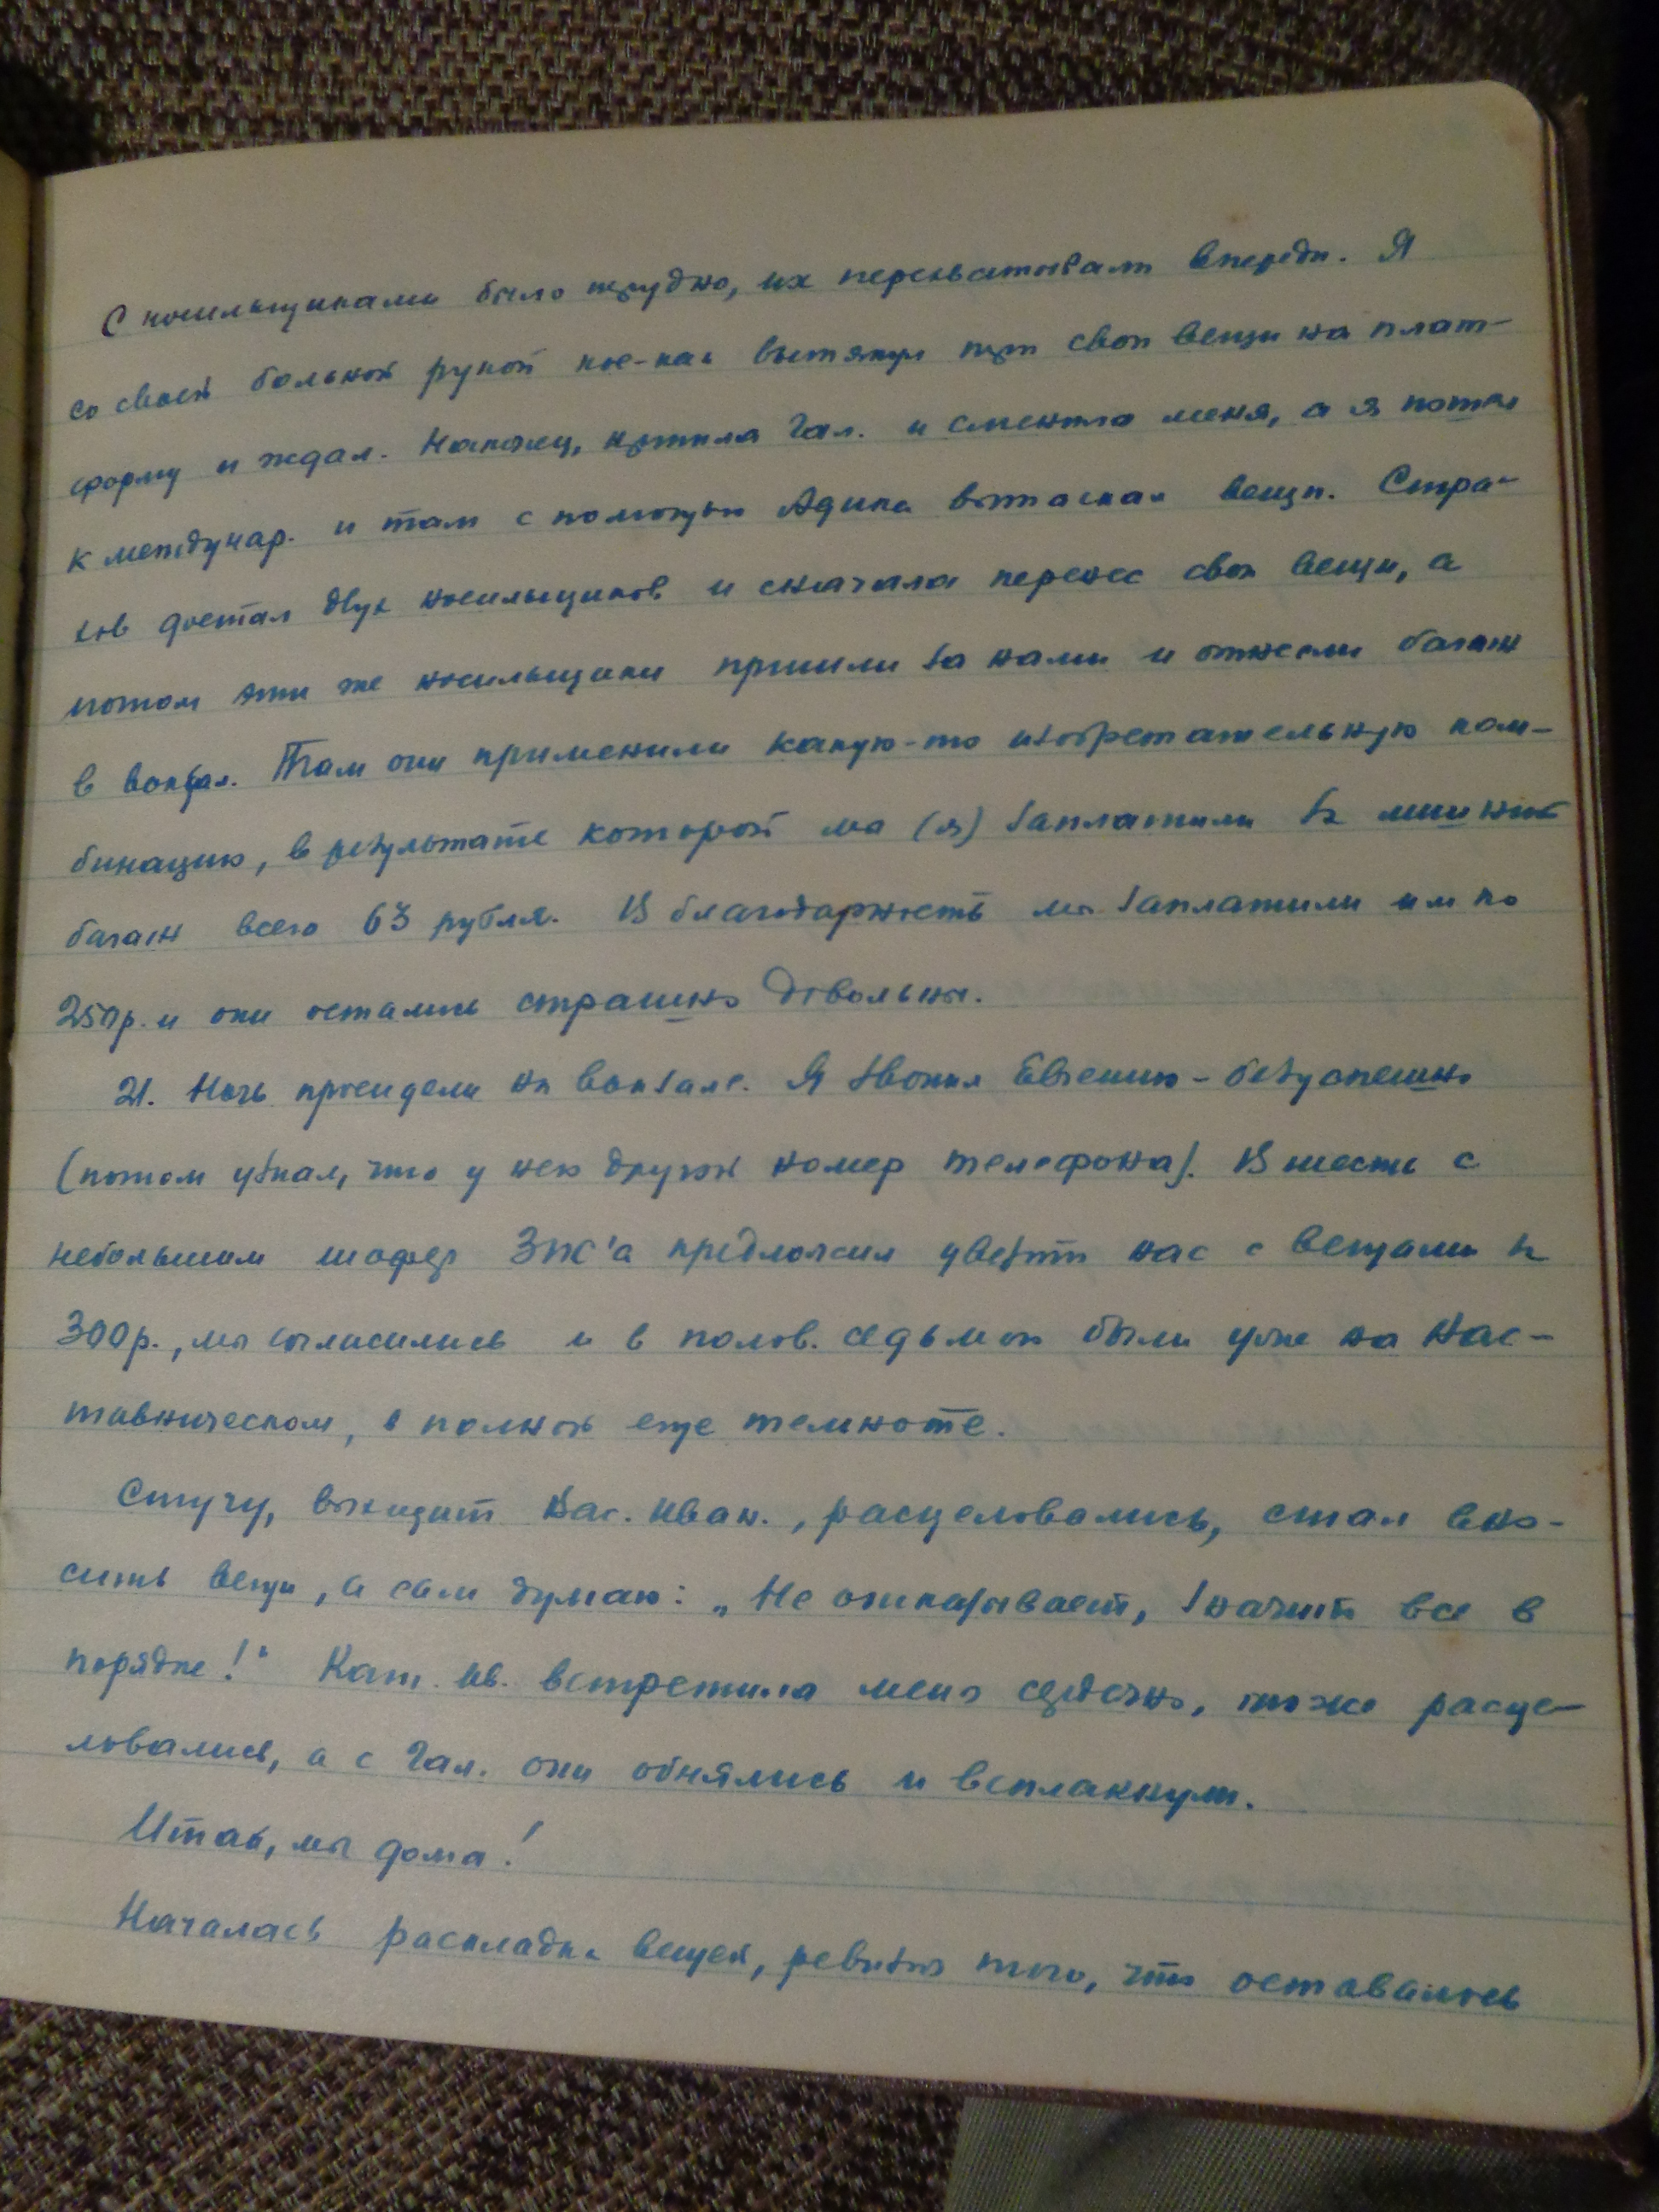 С носильщиками было трудно, их перехватывали впереди. Я
со своей больной рукой кое-как вытянул три свои вещи на плат-
форму и ждал. Наконец, пришла Гал. и сменила меня, а я пошел
к междунар. и там с помощью Адика вытаскал вещи. Стра-
хов достал двух носильщиков и сначала перенес свои вещи, а
потом эти же носильщики пришли за нами и отнесли багаж
в вокзал. Там они применили какую-то изобретательную ком-
бинацию, в результате которой мы (я) заплатили за лишний
багаж всего 63 рубля. В благодарность мы заплатили им по
250р. и они остались страшно довольны.
21. Ночь просидели на вокзале. Я звонил Евгению - безуспешно
(потом узнал, что у него другой номер телефона). В шесть с
небольшим шофер ЗИС'а предложил увезти нас с вещами за
300р., мы согласились и в полов. седьмого были уже на Нас-
тавническом, в полной еще темноте.
Стучу, выходит Вас. Иван., расцеловались, стал вно-
сить вещи, а сам думаю: „Не отказывает, значит все в
порядке!" Кат. Ив. встретила меня сердечно, тоже расце-
ловались, а с Гал. они обнялись и всплакнули.
Итак, мы дома!
Началась раскладка вещей, ревизия того, что оставалось